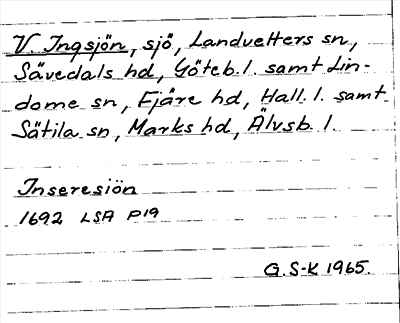 V. Ingsjön, sjö, Landvetters sn,
Sävedals hd, Göteb. l. samt Lin-
dome sn, Fjäre hd, Hall. l. samt
Sätila sn, Marks hd, Älvsb. l.
Inseresiön
1692 LSA P19
G. S-K 1965.